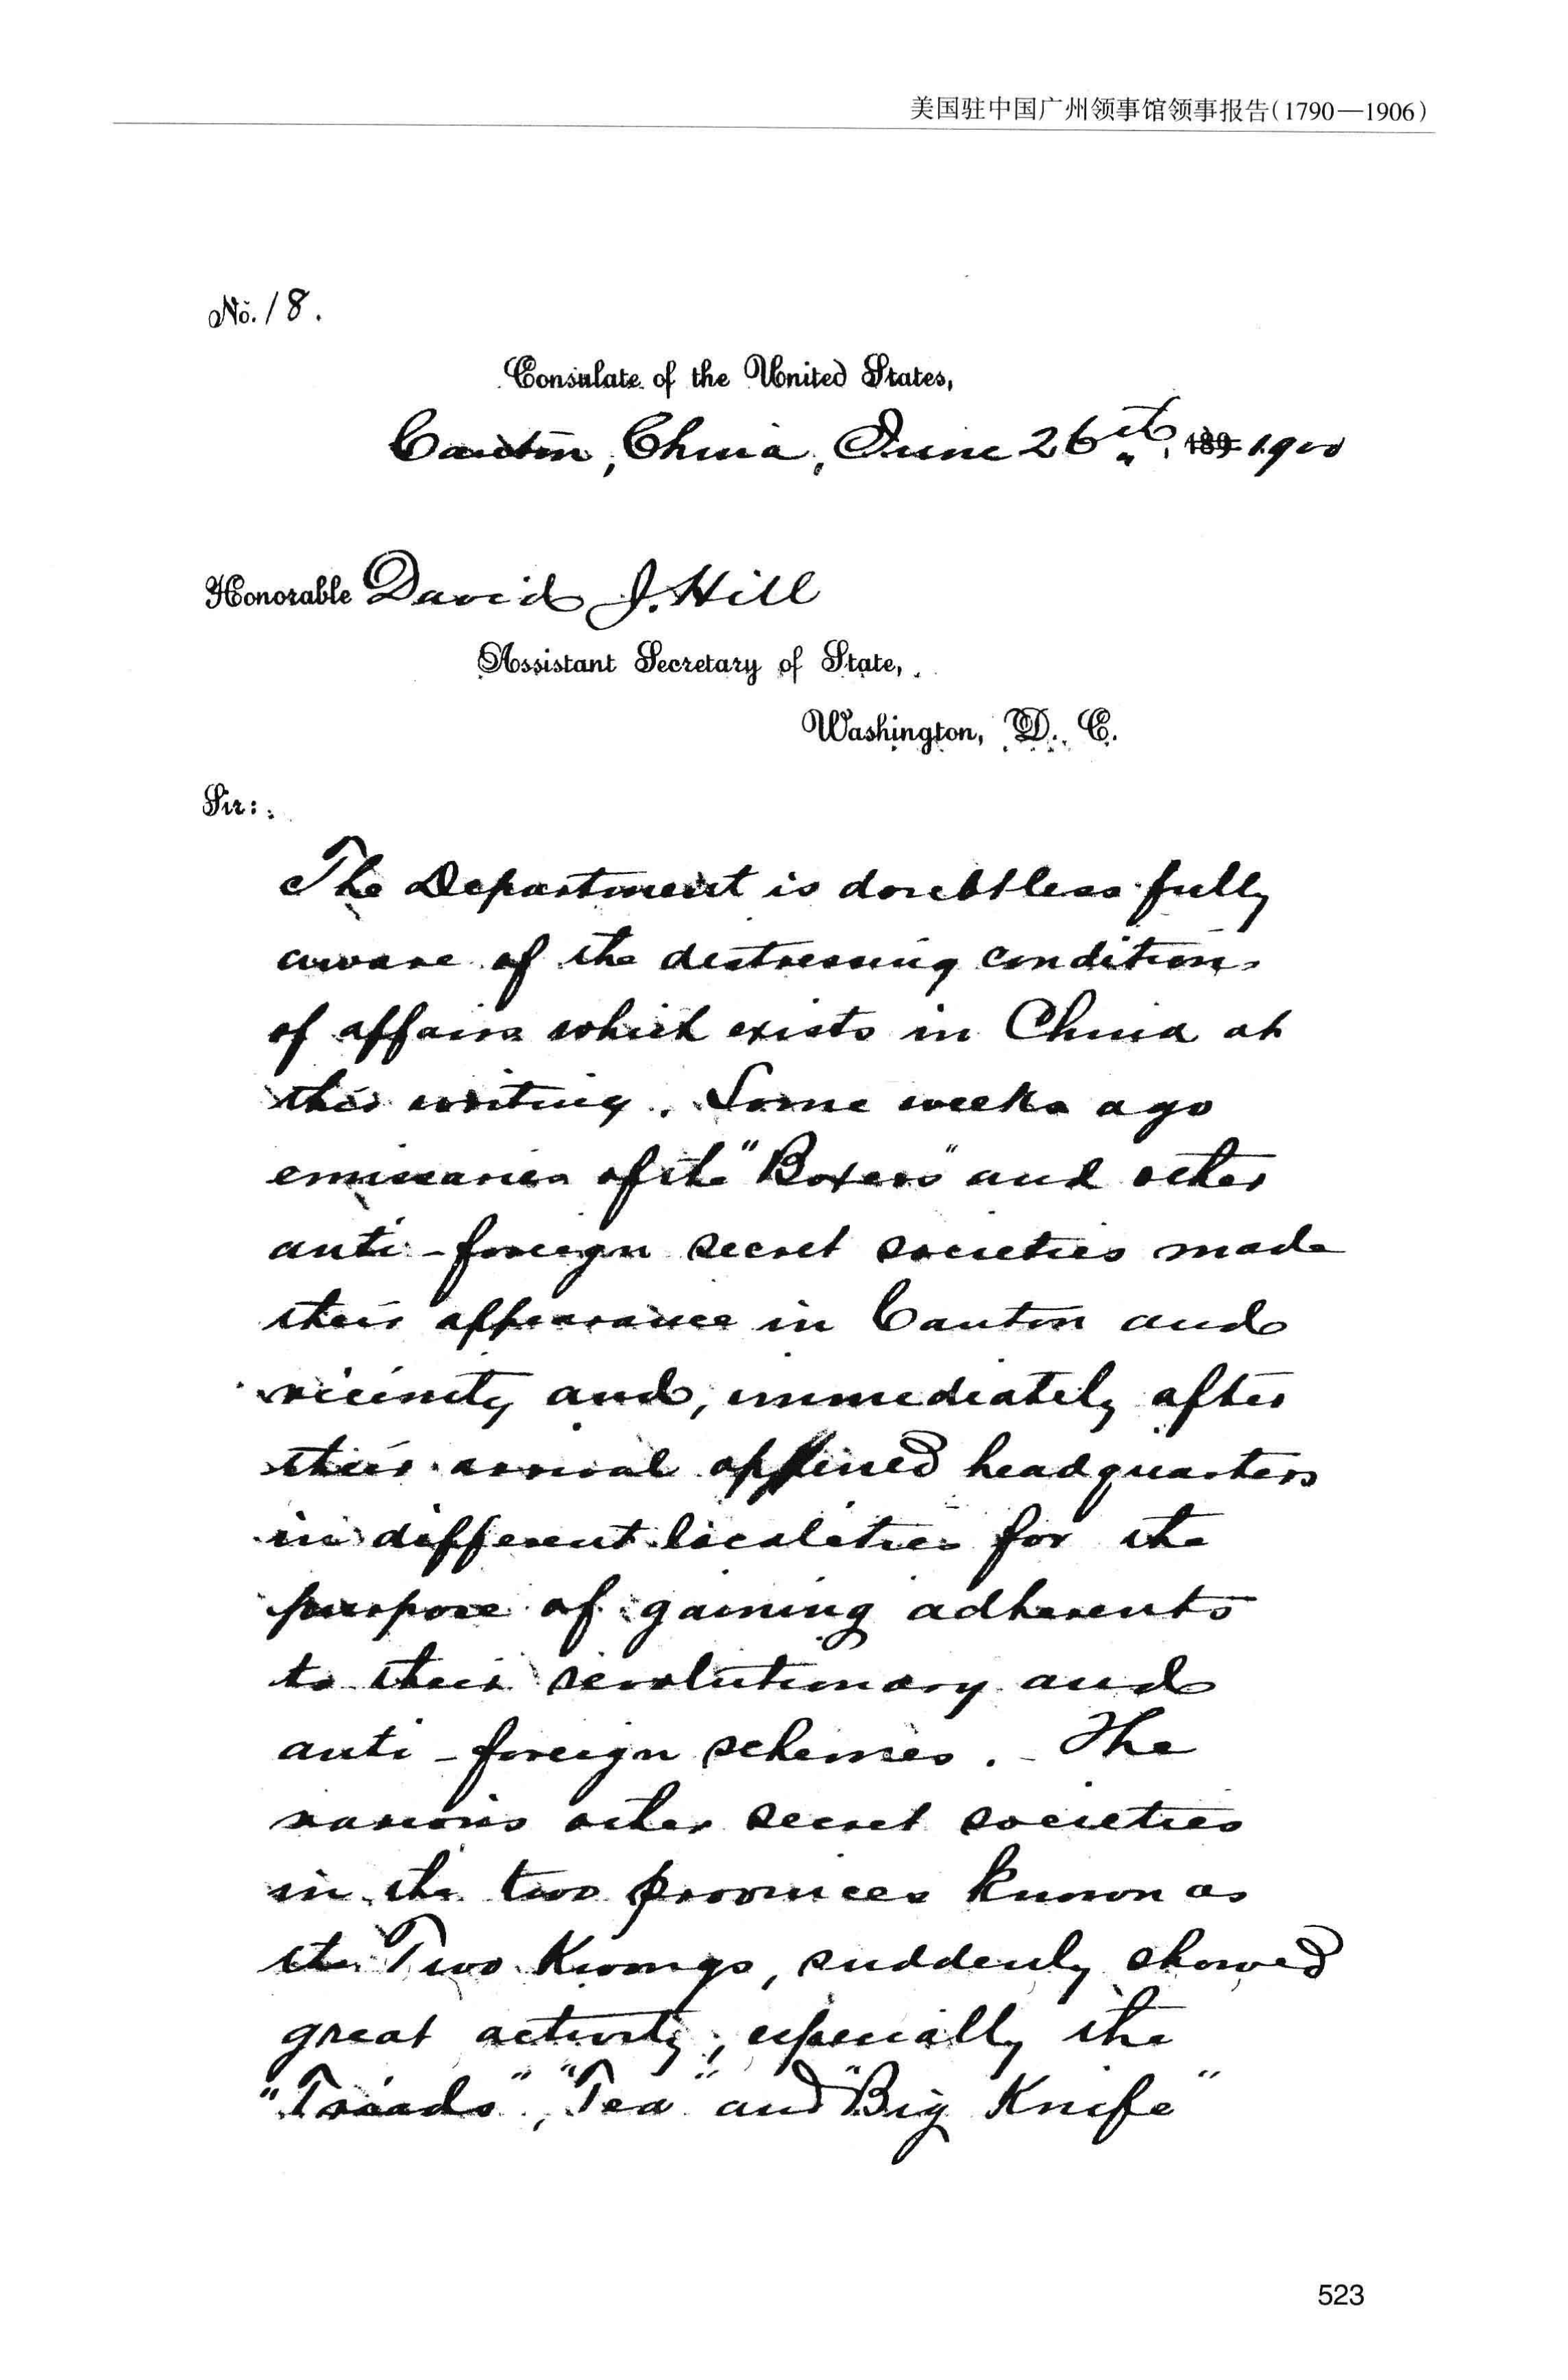 美国驻中国广州领事馆领事报告(1790—1906)
No. 18.
Consulate of the United States,
Canton, China, June 26th, 189 1900
Honorable David J. Hill
Assistant Secretary of State,
Washington, D. C.
Sir:
The Department is doubtless fully
aware of the distressing condition
of affairs which exists in China at
this writing. Some weeks ago
emissaries of the "Boxers" and other
anti-foreign secret societies made
their appearance in Canton and
vicinity and, immediately after
their arrival opened headquarters
in different localities for the
purpose of gaining adherents
to their revolutionary and
anti-foreign schemes. - The
various other secret societies
in the two provinces known as
the Two Kwongs, suddenly showed
great activity, especially the
"Triads", "Tea" and "Big Knife"
523